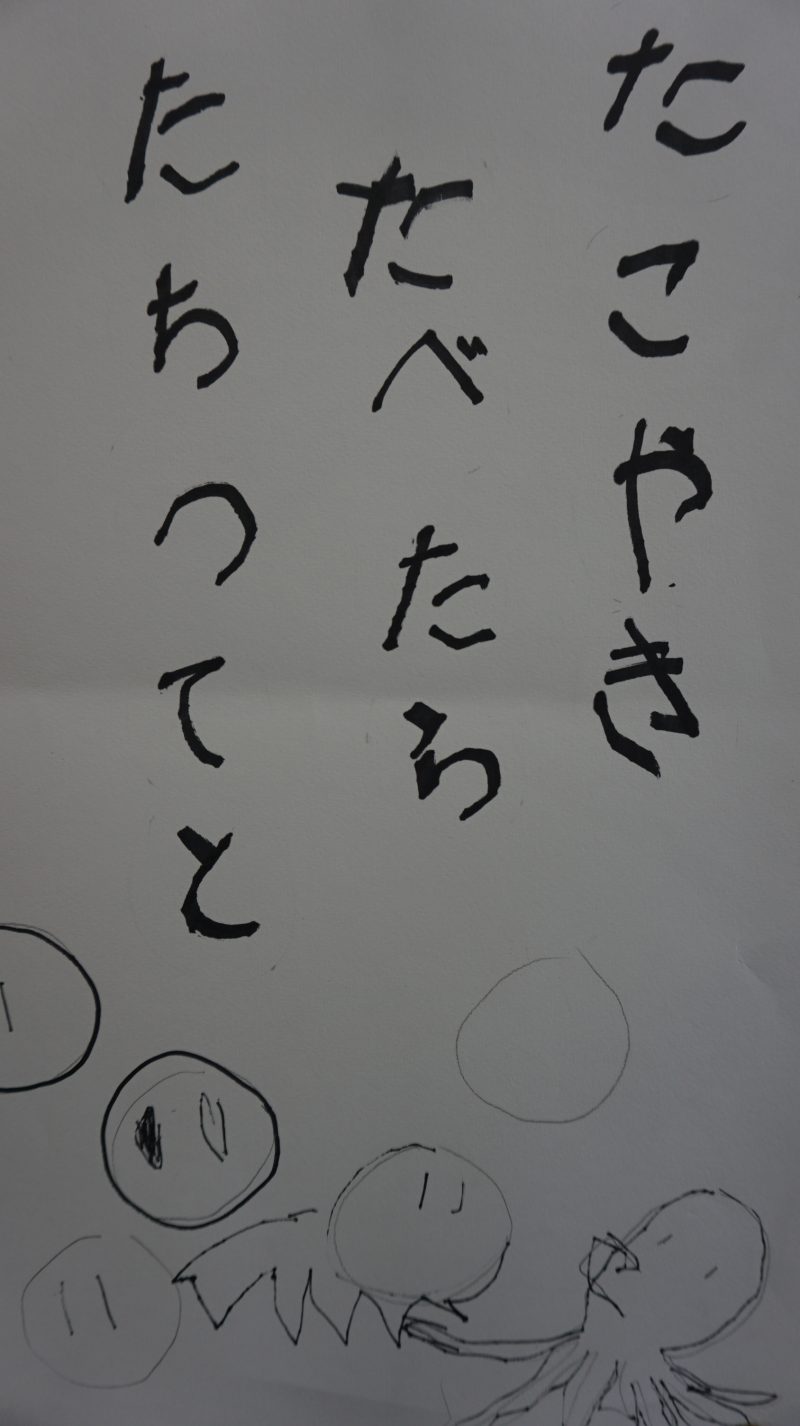 たこやき
たべたら
たちつてと